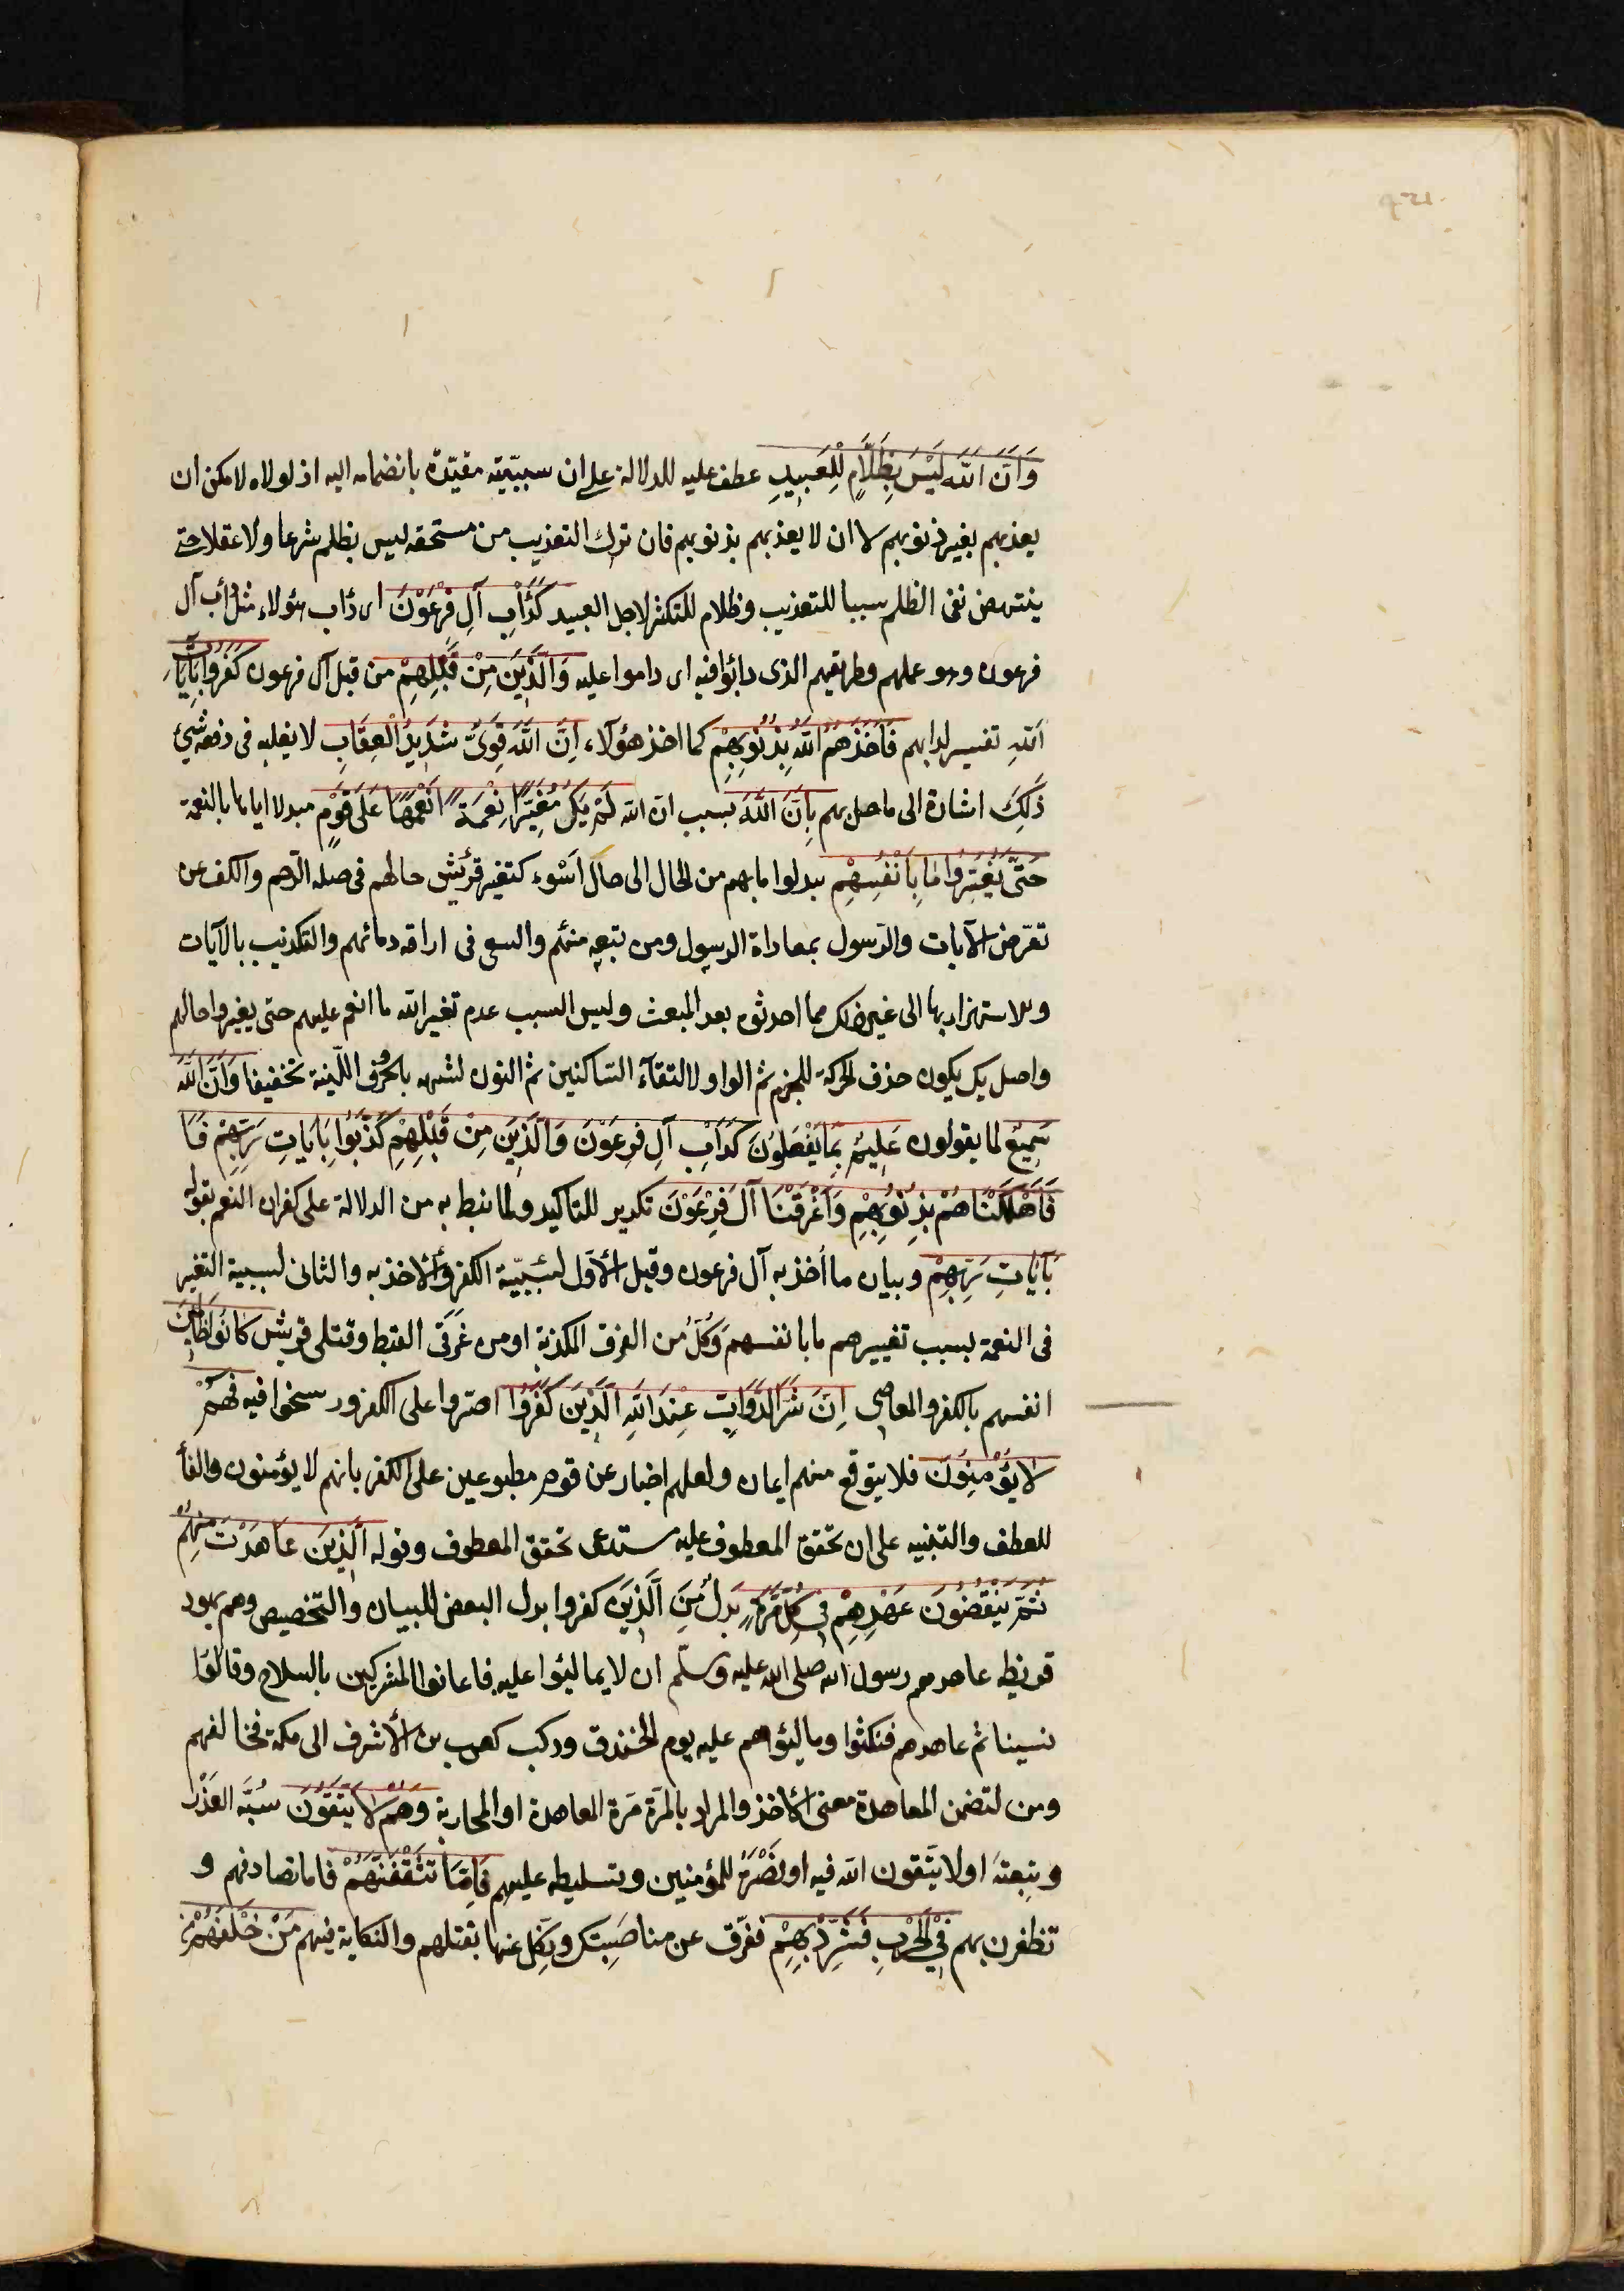 وَاَنَّ اللّٰهَ لَيْسَ بِظَلَّامٍ لِلْعَبِيدِ عطف عليه للدلالة على ان سببيّته مقيّدة بانضمامه اليه اذ لولاه لامكن ان
يعذبهم بغير ذنوبهم لا ان لا يعذبهم بذنوبهم فان ترك التعذيب من مستحقه ليس بظلم شرعا ولا عقلا حتى
ينتهض نفى الظلم سببا للتعذيب وظلام للتكثر لاجل العبيد كَدَأْبِ آلِ فِرْعَوْنَ اى دأب هؤلاء مثل دأب آل
فرعون وهو عملهم وطريقهم الذى دابوا فيه اى داموا عليه وَالَّذِينَ مِنْ قَبْلِهِمْ من قبل آل فرعون كَفَرُوا بِآيَاتِ
اللّٰهِ تفسير لدابهم فَاَخَذَهُمُ اللّٰهُ بِذُنُوبِهِمْ كما اخذ هؤلآء اِنَّ اللّٰهَ قَوِىٌّ شَدِيدُ الْعِقَابِ لا يغلبه فى دفعه شئ
ذٰلِكَ اشارة الى ما حل بهم بِاَنَّ اللّٰهَ بسبب ان الله لَمْ يَكُ مُغَيِّرًا نِعْمَةً اَنْعَمَهَا عَلَى قَوْمٍ مبدلا اياها بالنقمة
حَتَّى يُغَيِّرُوا مَا بِاَنْفُسِهِمْ يبدلوا ما بهم من الحال الى حال اَسْوء كتغير قريش حالهم فى صلة الرحم والكف عن
تعرّض الآيات والرسول بمعاداة الرسول ومن تبعه منهم والسعى فى اراقة دمائهم والتكذيب بالآيات
والاستهزاء بها الى غير ذلك مما احدثوه بعد المبعث وليس السبب عدم تغير الله ما انعم عليهم حتى يغيروا حالهم
واصل يك يكون حذف الحركة للجزم ثم الواو لالتقآء السّاكنين ثم النون لشبهه بالحروف اللّينة تخفيفا وَاَنَّ اللّٰهَ
سَمِيعٌ لما يقولون عَلِيمٌ بما يَفْعَلُونَ كَدَأْبِ آلِ فِرْعَوْنَ وَالَّذِينَ مِنْ قَبْلِهِمْ كَذَّبُوا بِآيَاتِ رَبِّهِمْ فَا
فَاَهْلَكْنَاهُمْ بِذُنُوبِهِمْ وَاَغْرَقْنَا آلَ فِرْعَوْنَ تكرير للتاكيد ولما نيط به من الدلالة على كفران النعم بقوله
بِآيَاتِ رَبِّهِمْ وبيان ما اُخذ به آل فرعون وقيل الأول لسببيّة الكفر والأخذ به والثانى لسببية التغير
فى النعمة بسبب تغييرهم ما بانفسهم وَكُلٌّ من الفرق المكذبة او من غَرقَى القبط وقتلى قريش كَانُوا ظَالِمِينَ
انفسهم بالكفر والمعاصى اِنَّ شَرَّ الدَّوَابِّ عِنْدَ اللّٰهِ الَّذِينَ كَفَرُوا اصرّوا على الكفر ورسخوا فيه فَهُمْ
لَا يُؤْمِنُونَ فلا يتوقع منهم ايمان ولعلهم اخبار عن قوم مطبوعين على الكفر بانهم لا يؤمنون والفا
للعطف والتنبيه على ان تحقق المعطوف عليه يستدعى تحقق المعطوف وقوله الَّذِينَ عَاهَدْتَ مِنْهُمْ
ثُمَّ يَنْقُضُونَ عَهْدَهُمْ فِى كُلِّ مَرَّةٍ بَدلٌ مِنَ الَّذِينَ كفروا بدل البعض للبيان والتخصيص وهم يهود
قريظه عاهدهم رسول الله صلى الله عليه وسلّم ان لا يمالئوا عليه فاعانوا المشركين بالسلاح وقالوا
نسينا ثم عاهدهم فنكثوا ومالئوهم عليه يوم الخندق وركب كعب بن الأشرف الى مكة فحالفهم
ومن لتضمن المعاهدة معنى الأخذ والمراد بالمرّة مَرة المعاهدة او المحاربة وَهُمْ لَا يَتَّقُونَ سُبّة الغَدْر
وتبعتَه او لا يتّقون الله فيه او نَصْرَه للمؤمنين وتسليطه عليهم فَاِمَّا تَثْقَفَنَّهُمْ فاما تصادفنهم و
تظفرن بهم فِى الْحَرْبِ فَشَرِّدْ بِهِمْ ففرّق عن مناصبتك ونكل عنها بقتلهم والنكاية فيهم مَنْ خَلْفَهُمْ من